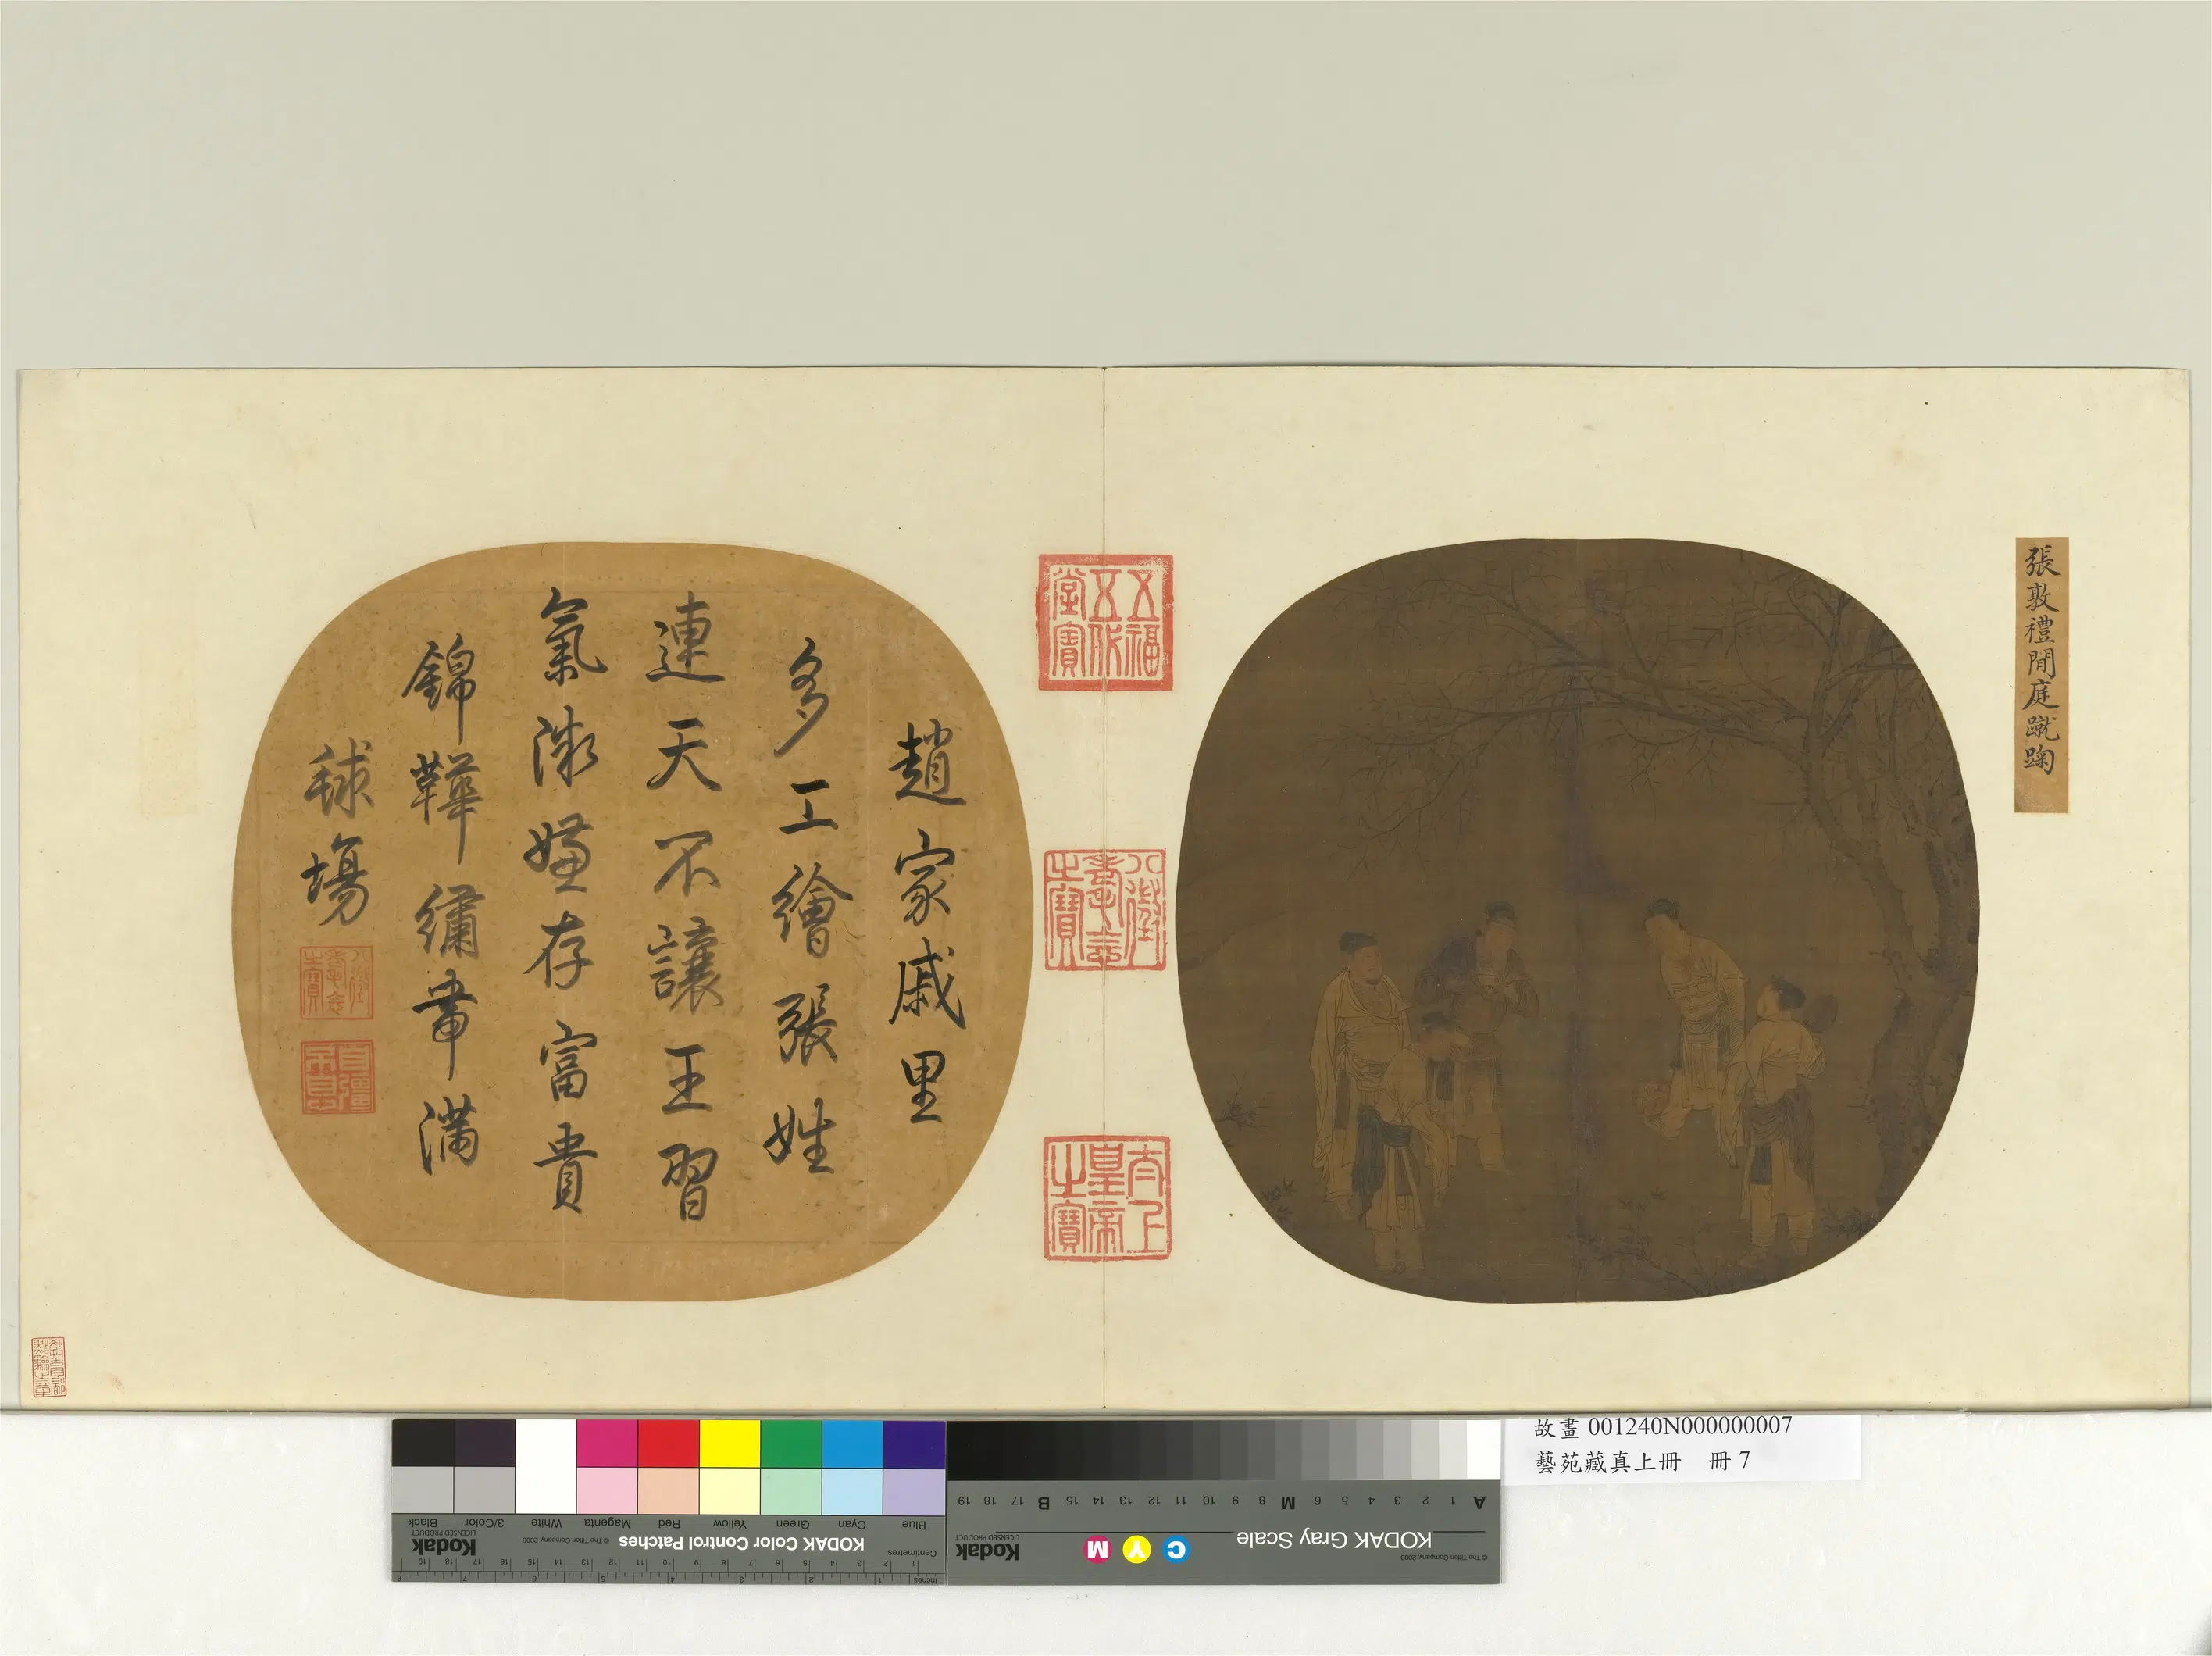 張敦禮閒庭蹴踘
五福五代堂寶
八徵耄念之寶
太上皇帝之寶
趙家戚里
多工繪張姓
連天不讓王習
氣漱嫌存富貴
錦鞾繡帣滿
毬場
八徵耄念之寶
自彊不息
故畫 001240N000000007
藝苑藏真上冊 冊 7
Blue Cyan Green Yellow Red Magenta White 3/Color Black
KODAK Color Control Patches
© The Tiffen Company, 2000
Kodak
LICENSED PRODUCT
Centimetres
Inches
A 1 2 3 4 5 6 M 8 9 10 11 12 13 14 15 B 17 18 19
KODAK Gray Scale
C Y M
Kodak
LICENSED PRODUCT
© The Tiffen Company, 2000